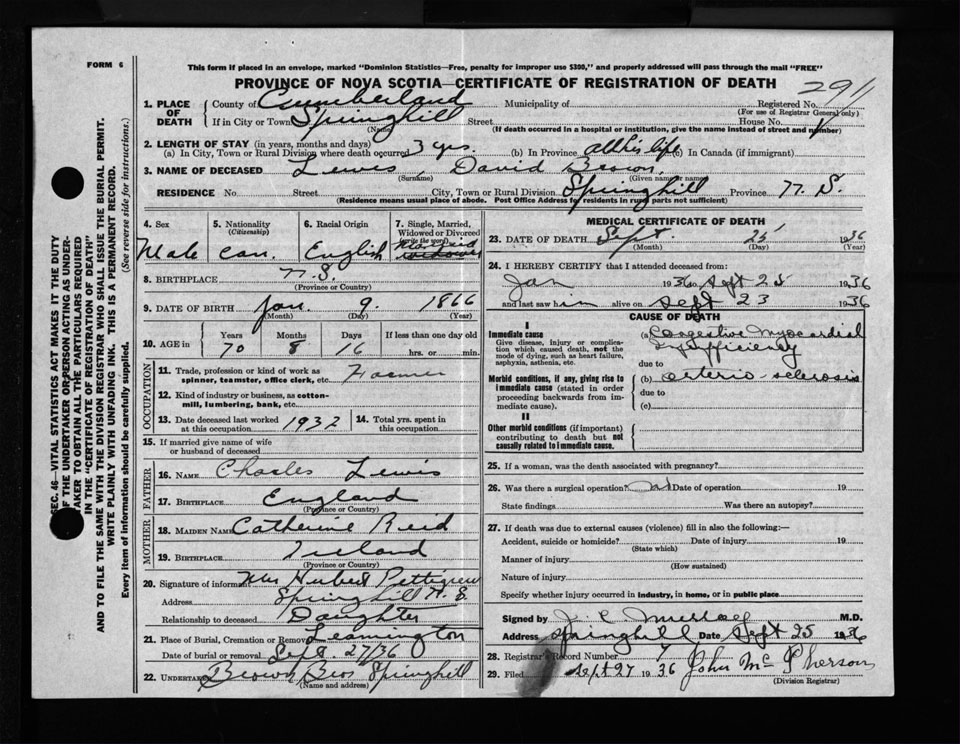 FORM 6
This form if placed in an envelope, marked "Dominion Statistics—Free, penalty for improper use $300," and properly addressed will pass through the mail "FREE"
PROVINCE OF NOVA SCOTIA—CERTIFICATE OF REGISTRATION OF DEATH
2911
1. PLACE OF DEATH County of Cumberland Municipality of Registered No.
(For use of Registrar General only)
If in City or Town Springhill Street House No.
(Name) (If death occurred in a hospital or institution, give the name instead of street and number)
2. LENGTH OF STAY (in years, months and days)
(a) In City, Town or Rural Division where death occurred 3 yrs. (b) In Province all his life (c) In Canada (if immigrant)
3. NAME OF DECEASED Lewis, David Brown
(Surname) (Given name or names)
RESIDENCE No. Street City, Town or Rural Division Springhill Province N. S.
(Residence means usual place of abode. Post Office Address for residents in rural parts not sufficient)
4. Sex 5. Nationality (Citizenship) 6. Racial Origin 7. Single, Married, Widowed or Divorced (Write the word)
Male Can. English
8. BIRTHPLACE N.S.
(Province or Country)
9. DATE OF BIRTH Jan. 9. 1866
(Month) (Day) (Year)
10. AGE in Years Months Days If less than one day old
70 8 16 hrs. or min.
OCCUPATION
11. Trade, profession or kind of work as spinner, teamster, office clerk, etc. Farmer
12. Kind of industry or business, as cotton-mill, lumbering, bank, etc.
13. Date deceased last worked at this occupation 1932 14. Total yrs. spent in this occupation
15. If married give name of wife or husband of deceased
FATHER
16. NAME Charles Lewis
17. BIRTHPLACE England
(Province or Country)
MOTHER
18. MAIDEN NAME Catherine Reid
19. BIRTHPLACE Ireland
(Province or Country)
20. Signature of informant Mrs Hubert Pettigrew
Address Springhill N. S.
Relationship to deceased Daughter
21. Place of Burial, Cremation or Removal Leamington
Date of burial or removal Sept. 27/36
22. Undertaker Brown Bros Springhill
(Name and address)
MEDICAL CERTIFICATE OF DEATH
23. DATE OF DEATH Sept. 25 1936
(Month) (Day) (Year)
24. I HEREBY CERTIFY that I attended deceased from:
Jan 1936 to Sept 25 1936
and last saw him alive on Sept 23 1936
CAUSE OF DEATH
I
Immediate cause
Give disease, injury or complication which caused death, not the mode of dying, such as heart failure, asphyxia, asthenia, etc.
(a) Congestive Myocardial Insufficiency
due to
Morbid conditions, if any, giving rise to immediate cause (stated in order proceeding backwards from immediate cause).
(b) arterio-sclerosis
due to
(c)
II
Other morbid conditions (if important) contributing to death but not causally related to immediate cause.
25. If a woman, was the death associated with pregnancy?
26. Was there a surgical operation? Date of operation 19
State findings Was there an autopsy?
27. If death was due to external causes (violence) fill in also the following:—
Accident, suicide or homicide? Date of injury 19
(State which)
Manner of injury
(How sustained)
Nature of injury
Specify whether injury occurred in Industry, in home, or in public place
Signed by M.D.
Address Springhill Date Sept 25 1936
28. Registrar's Record Number
29. Filed Sept 27 1936 John McPherson
(Division Registrar)
SEC. 46—VITAL STATISTICS ACT MAKES IT THE DUTY
OF THE UNDERTAKER OR PERSON ACTING AS UNDER-
TAKER TO OBTAIN ALL THE PARTICULARS REQUIRED
IN THE "CERTIFICATE OF REGISTRATION OF DEATH"
AND TO FILE THE SAME WITH THE DIVISION REGISTRAR WHO SHALL ISSUE THE BURIAL PERMIT.
WRITE PLAINLY WITH UNFADING INK. THIS IS A PERMANENT RECORD.
Every item of information should be carefully supplied. (See reverse side for instructions.)